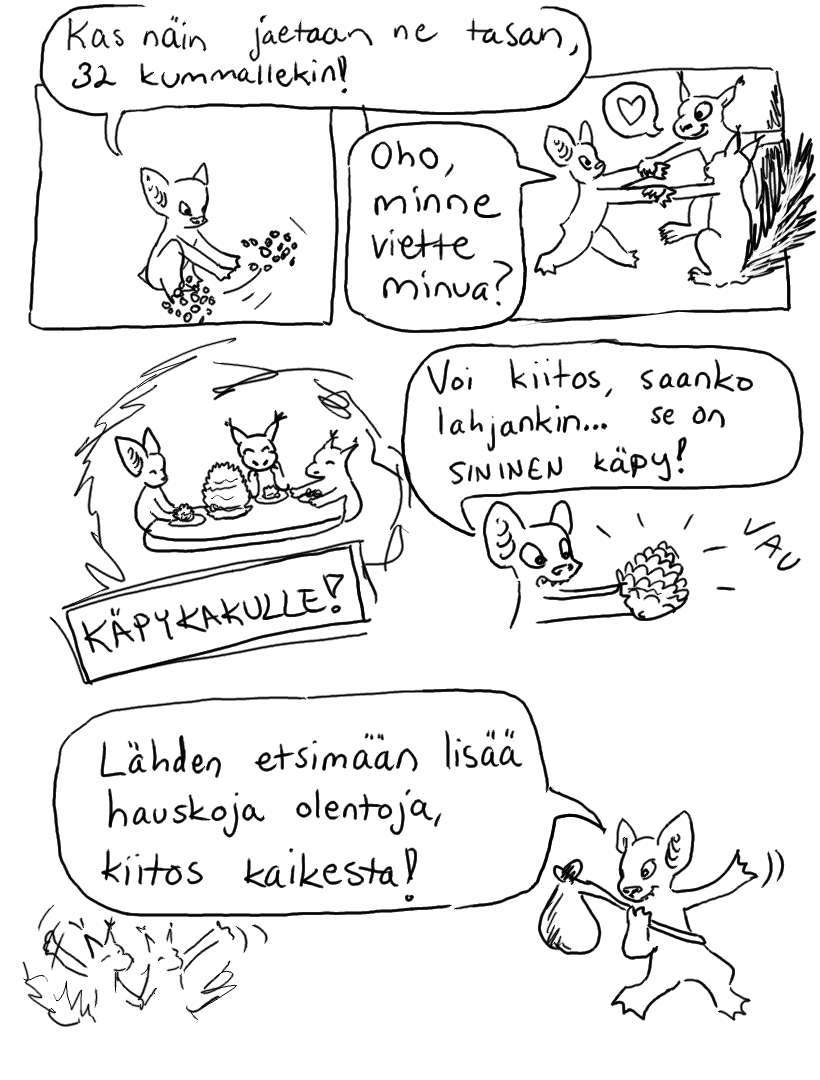 Kas näin jaetaan ne tasan,
32 kummallekin!
Oho,
minne
viette
minua?
KÄPYKAKULLE!
Voi kiitos, saanko
lahjankin... se on
SININEN käpy!
VAU
Lähden etsimään lisää
hauskoja olentoja,
kiitos kaikesta!